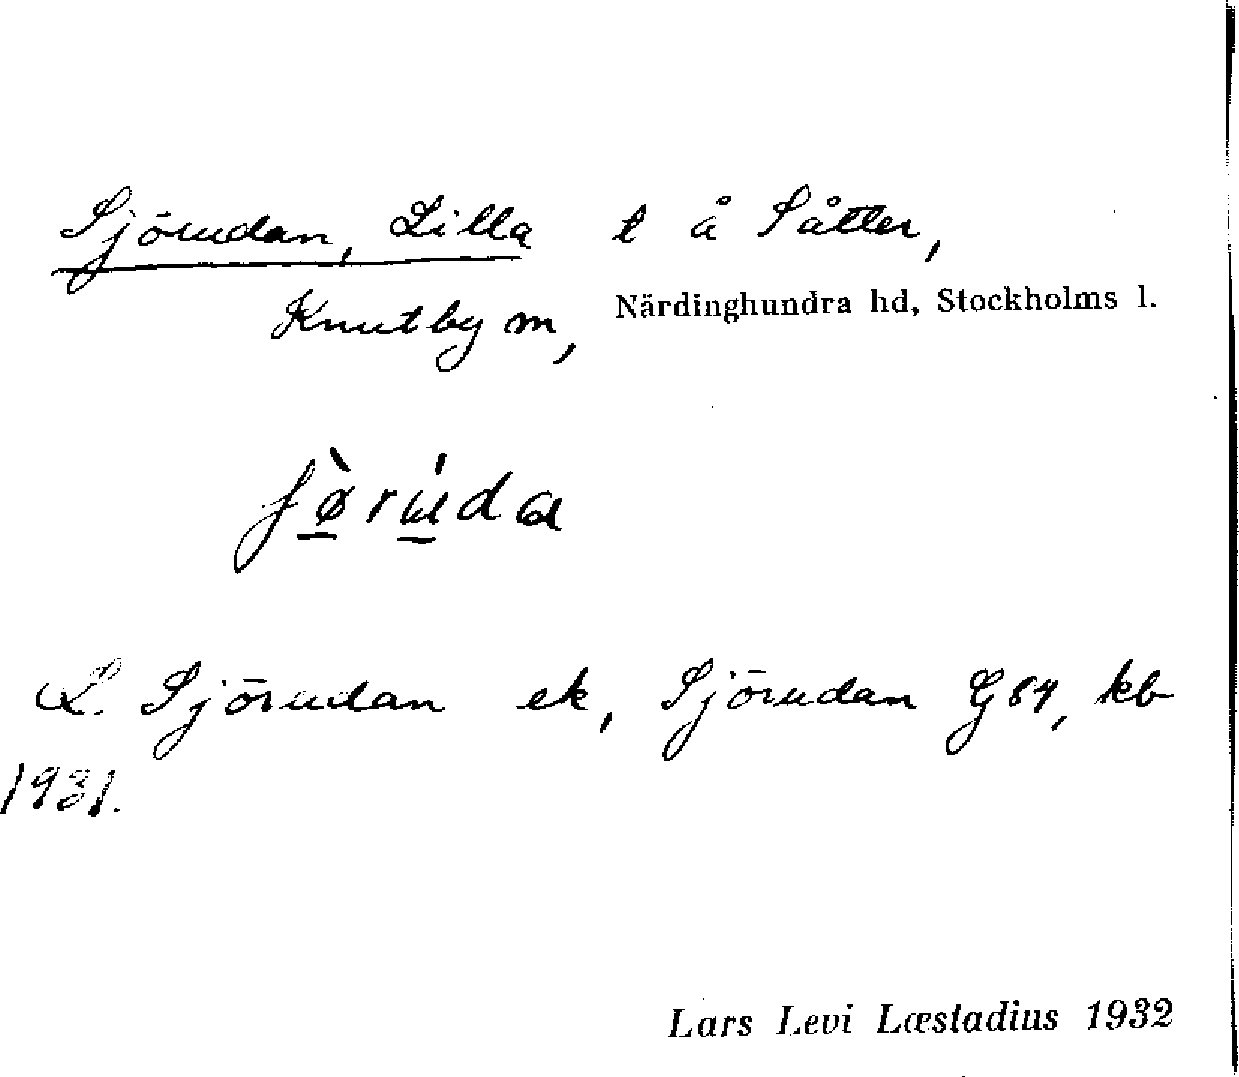 Sjörudan, Lilla t å Såtter,
Knutby m, Närdinghundra hd, Stockholms l.
ʃø̀rʉ́da
L. Sjörudan ek, Sjörudan G84, kb
1931.
Lars Levi Læstadius 1932